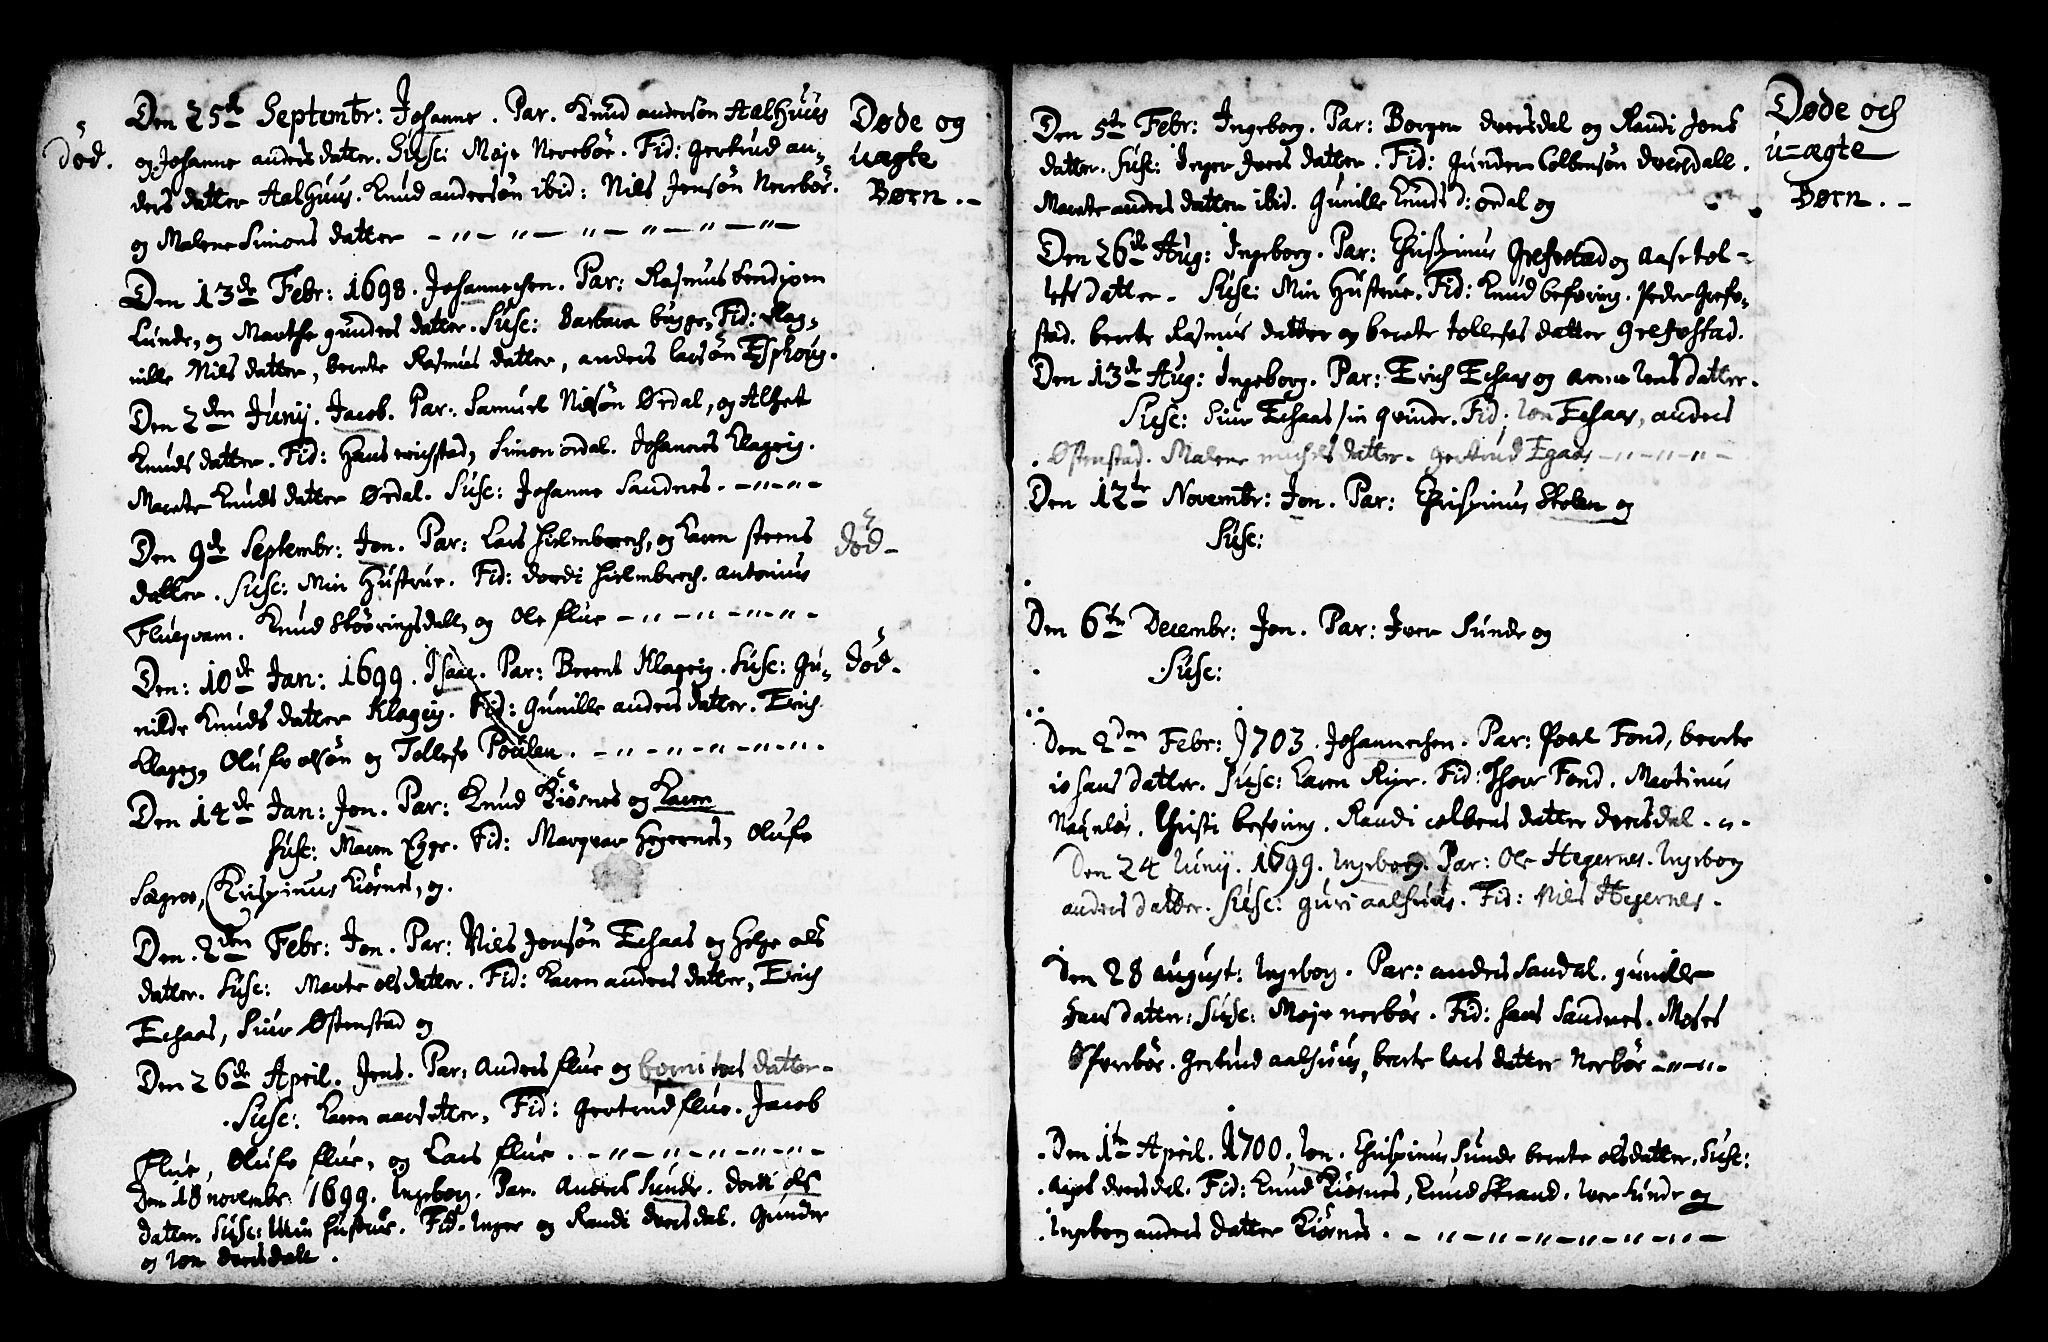 Den 25de Septembr: Johanne. Par. Knud andersøn Aalhuus
død. og Johanne anders datter. Susc: Moje Nerebör. Fid: Gertrud an-
ders datter Aalhuus. Knud andersön ibid: Nils Jensön Nerebör.
og Malene Simons datter - " - " - " - " - " - " -
Døde og
uægte
Børn. -
Den 13de Febr: 1698. Johannechen. Par: Rasmus bendixen
Lunde, og Marthe gunders datter. Susc: Barbara bugge, Fid: Rag-
nille Nils datter, berete Rasmus datter, anders larsön Esphoug.
Den 2den Junij. Jacob. Par: Samuel Nilsön Ørdal, og Alhet
Knuds datter. Fid: Hans erichstad, Simon ördal. Johannes Klagegg.
Marete Knuds datter Ørdal. Susc: Johanne Sandnes. - " - " -
Den 9de Septembr: Jon. Par: Lars Hielmbrech, og Karen steens
død -
datter. Susc: Min Hustrue. Fid: dordi Hielmbrech. antonius
Fluegvam. Knud Skövringsdall, og Ole flue - " - " - " - " -
Den: 10de Jan: 1699. Isaac. Par: Berens Klagegg. Susc: Gu-
død -
nilde Knuds datter Klageg. Fid: Gunille anders datter. Erich
Klageg, Olufv olsön og Tollefv Poulen. - " - " - " - " - " -
Den 14de Jan: Jon. Par: Knud Kiösnes og Karen
Susc: Maren Egge. Fid: Marqvar Hegernes, Olufv
Sægroe, Krispinus Kiösnes, og.
Den 2den Febr: Jon. Par: Niels Jonsön Echaas og Helge ols
datter. Susc: Marte ols datter. Fid: Karen anders datter, Erich
Echaas, Siur Østenstad og
Den 26de April. Jens. Par: Anders flue og datter -
Susc: Karen, Fid: Gertrud flue. Jacob
flue, Olufv flue, og Lars flue. - " - " - " - " - " -
Den 18 novembr 1699. Ingeborg. Par. Anders Sunde. dordi ols
datter. Susc: Min Hustrue. Fid. Inger og Randi dversdal. Gunder
og Jon dversdall.
Den 5te Febr: Ingeborg. Par: Borgen dversdal og Randi Jons
datter. Susc: Inger Jvers datter. Fid: Gunder Colbensön dversdall.
Marete anders datter ibid. Gunille Knuds d: ordal og
Døde och
u-ægte
Børn. -
Den 26de Aug: Ingeborg. Par: Chrispinus Grefvstad og Aase tol-
lefs datter - Susc: Min Hustrue. Fid: Knud befring. Peder Grefv-
stad. berete Rasmus datter og berete tollefvs datter Grefvstad.
Den 13de Aug: Ingeborg. Par: Erich Echaas og anne Jens datter.
Susc: Siur Echaas sin qvinde. Fid: Jon Echaas, anders
Østenstad. Malene michels datter. gertrud Egaas - " - " - " -
Den 12te Novembr: Jon. Par: Chrispinus Skolen og
Susc:
Den 6te Decembr: Jon. Par: Jver Sunde og
Susc:
Den 2den Febr: 1703. Johannechen. Par: Poel Fond, berete
johans datter. Susc: Karen Ripe. Fid: Thor Fond. Martinus
Nagnløs. Christi befring. Randi colbens datter dversdal - " -
Den 24 Junij. 1699. Ingeborg. Par: Ole Hegernes. Ingeborg
anders datter. Susc: guri aalhuus. Fid: Niels Hegernes.
Den 28 august: Ingeborg. Par: anders Sandal. gunille
Jens datter: Susc: Moje nerbör. Fid: hans Sandnes. Moses
Øfverbör. Gertrud aalhuus, berete lars datter Nerbör - " - " -
Den 1te April. 1700. Jon. Chrispinus Sunde berete olsdatter. Susc:
dversdal. Fid: Knud Kiösnes, Knud Strand. Iver Sunde og
Ingeborg anders datter Kiösnes. - " - " - " - " - " - " -